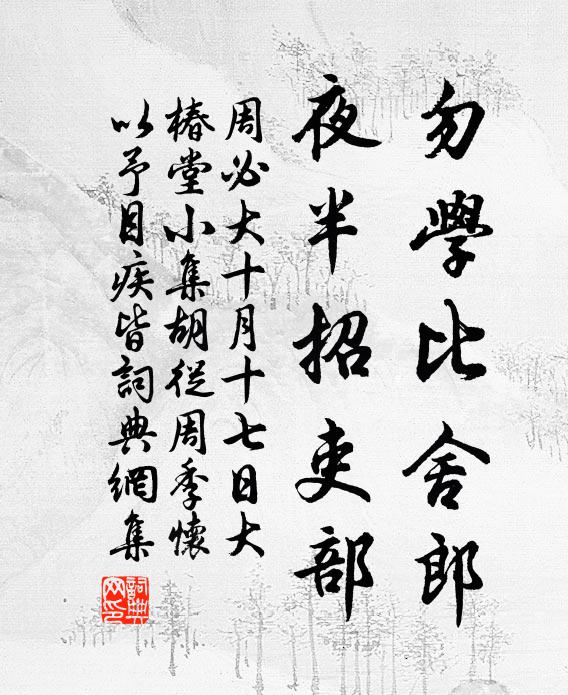 勿學比舍郎
夜半招吏部
周必大十月十七日大
椿堂小集胡從周季懷
以予目疾皆詞典網集
詞典網印